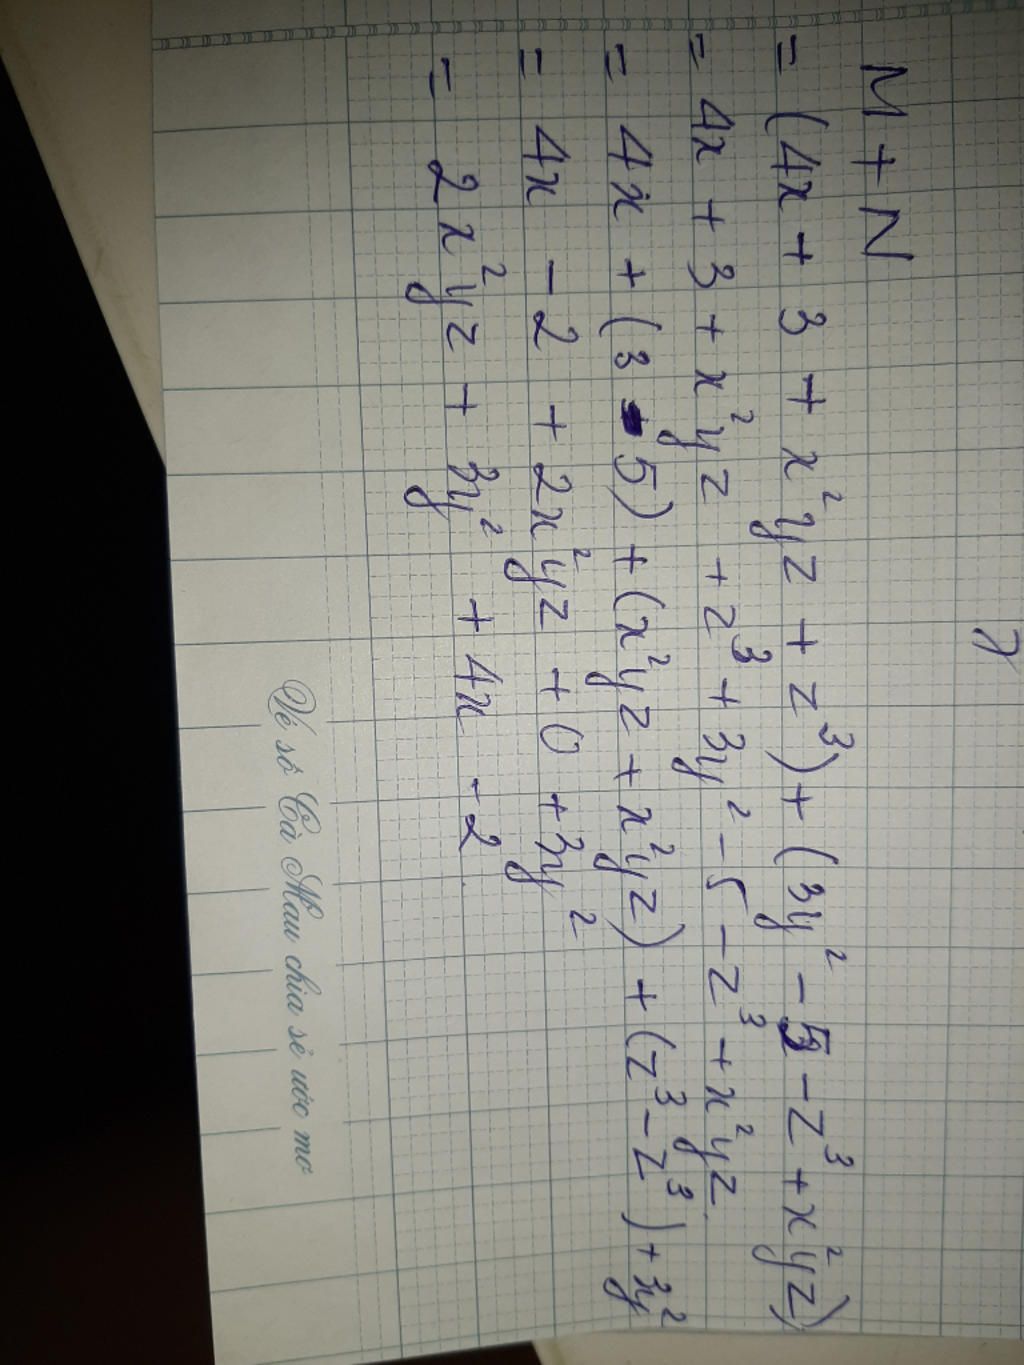 M + N
= (4x + 3 + x²yz + z³) + (3y² - 5 - z³ + x²yz)
= 4x + 3 + x²yz + z³ + 3y² - 5 - z³ + x²yz.
= 4x + (3 - 5) + (x²yz + x²yz) + (z³ - z³) + 3y²
= 4x - 2 + 2x²yz + 0 + 3y²
= 2x²yz + 3y² + 4x - 2.
Vé số Cà Mau chia sẻ ước mơ